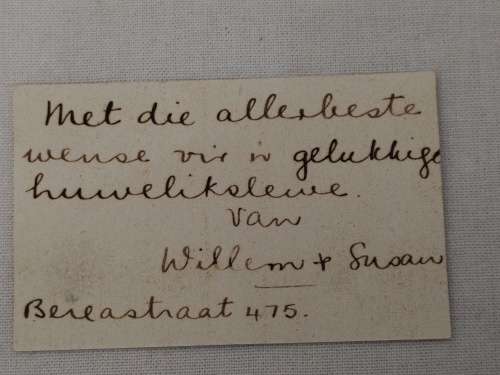 Met die allerbeste
wense vir 'n gelukkige
huwelikslewe.
Van
Willem + Susan
Bereastraat 475.